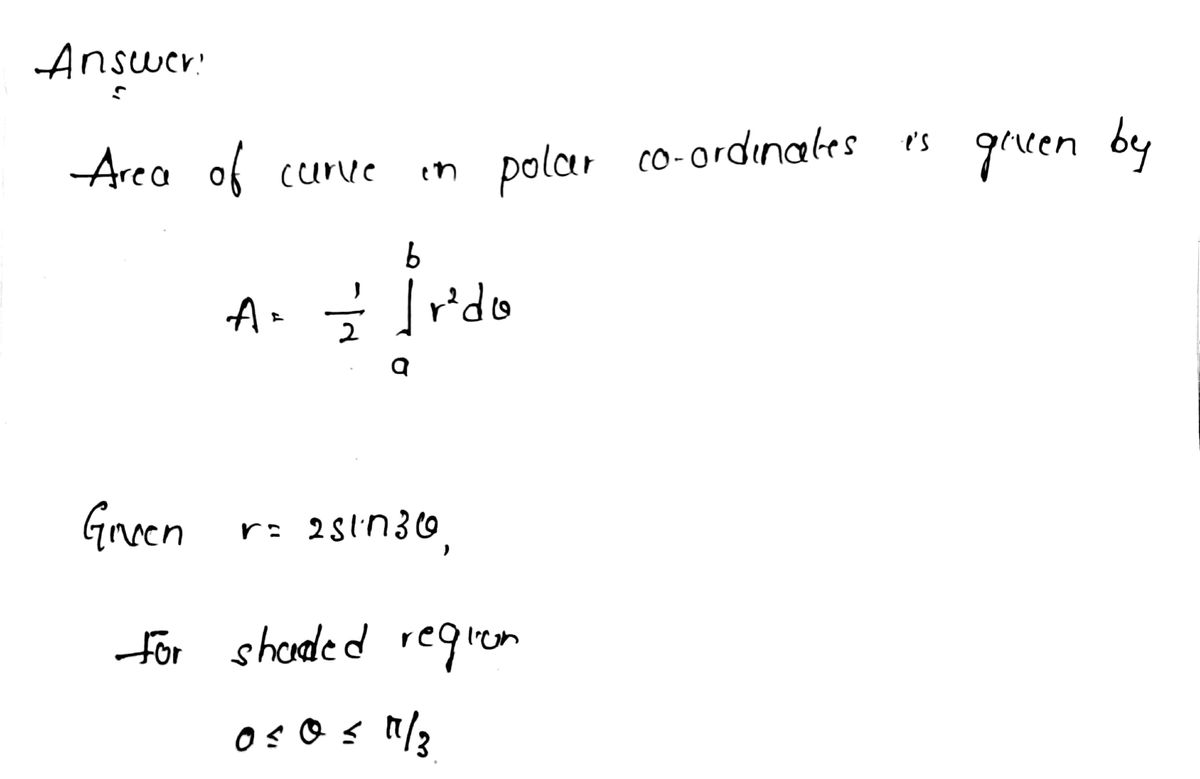 Answer:
Area of curve in polar co-ordinates is given by
A = 1/2 ∫_a^b r² dθ
Given r = 2sin3θ,
for shaded region
0 ≤ θ ≤ π/3.